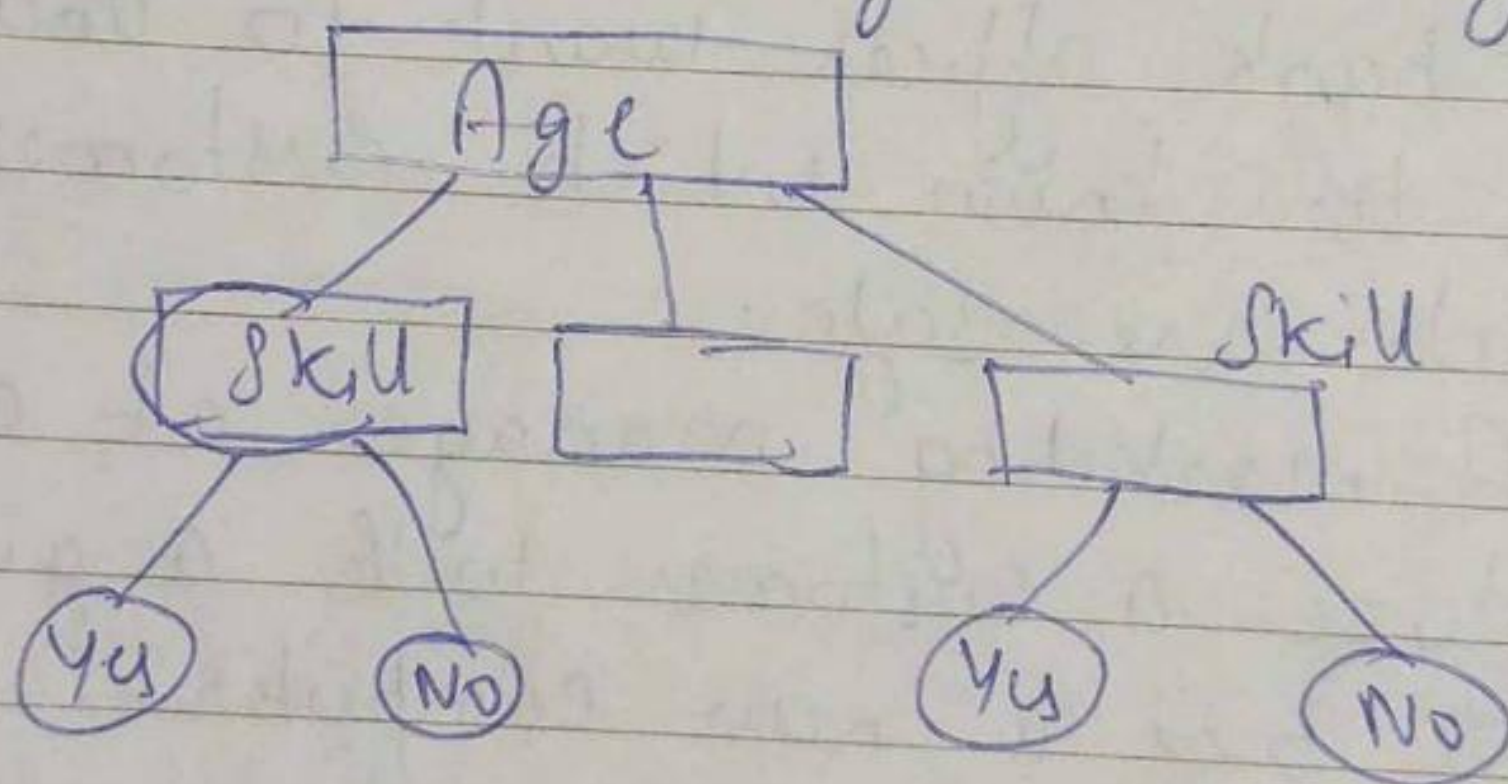 Age
Skill
Skill
Yes
No
Yes
No